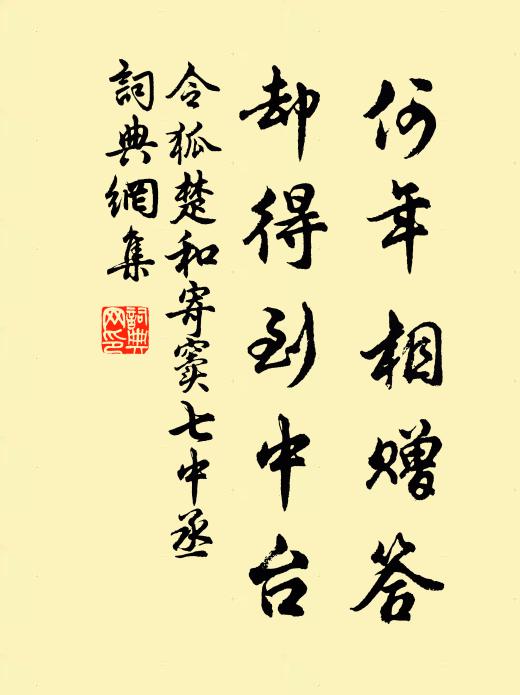 何年相赠答
却得到中台
令狐楚和寄窦七中丞
词典網集
词典网印